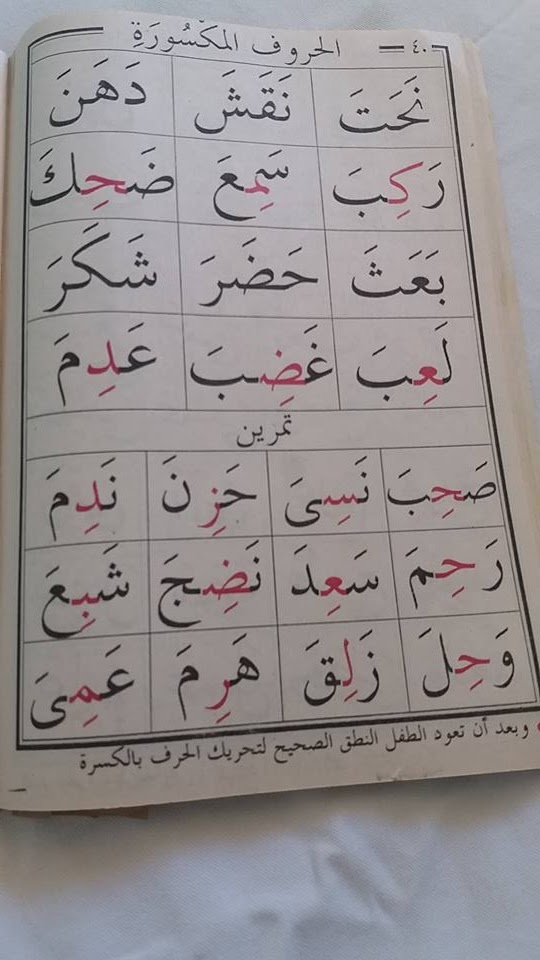 ٤٠ — الحروف المَكْسُورَةِ
نَحَتَ نَقَشَ دَهَنَ
رَكِبَ سَمِعَ ضَحِكَ
بَعَثَ حَضَرَ شَكَرَ
لَعِبَ غَضِبَ عَدِمَ
تمرين
صَحِبَ نَسِىَ حَزِنَ نَدِمَ
رَحِمَ سَعِدَ نَضِجَ شَبِعَ
وَحِلَ زَلِقَ هَرِمَ عَمِىَ
وبعد أن تعود الطفل النطق الصحيح لتحريك الحرف بالكسرة